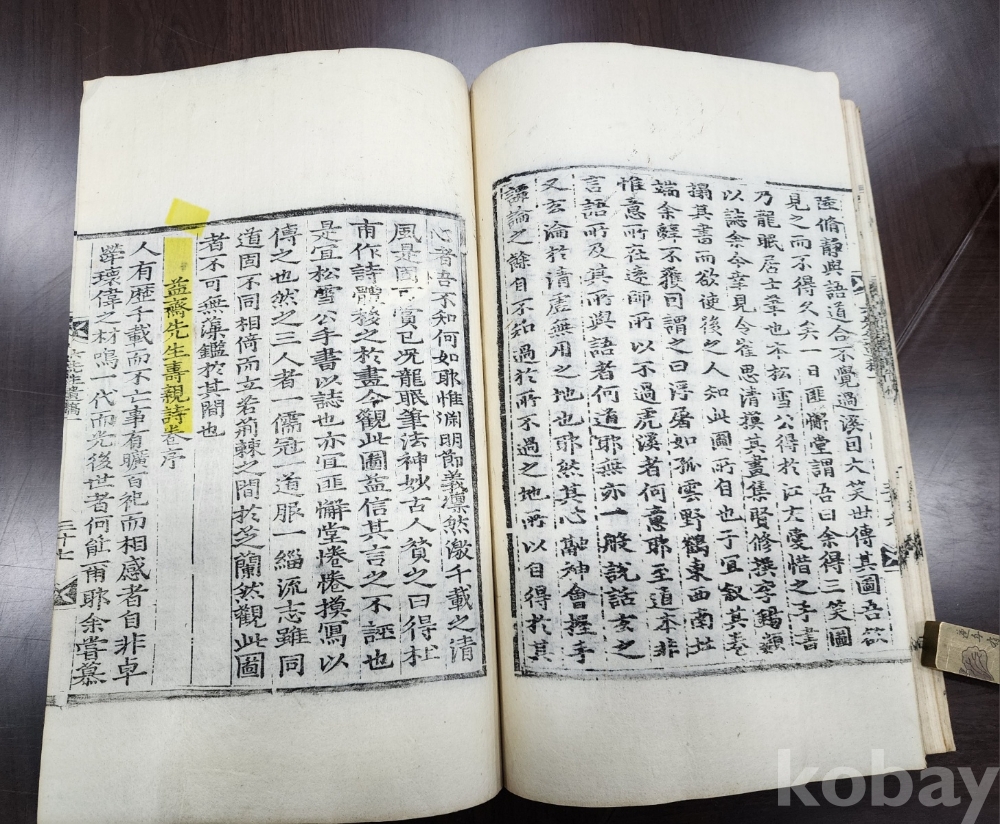 陸脩靜與語道合不覺過溪因大笑世傳其圖吾欲
見之而不得久矣一日匪懈堂謂吾曰余得三笑圖
乃龍眠居士筆也本松雪公得於江左愛惜之手書
以誌余今幸見令崔思清摸其畫集賢修撰李錫類
搨其書而欲使後之人知此圖所自也子宜叙其卷
端余辭不獲司謂之曰浮屠如孤雲野鶴東西南北
惟意所在遠師所以不過虎溪者何意耶至道本非
言語所及其所與語者何道耶無亦一般說話玄之
又玄淪於清虛無用之地也耶然其心融神會握手
譚論之餘自不知過於所不過之地所以自得於其
心者吾不知何如耶惟淵明節義凛然激千載之清
風是圖可賞已況龍眠筆法神妙古人贊之曰得杜
甫作詩體移之於畫今觀此圖益信其言之不誣也
是宜松雪公手書以誌也亦宜匪懈堂惓惓摸寫以
傳之也然之三人者一儒冠一道服一緇流志雖同
道固不同相倚而立若荊棘之間於芝蘭然觀此圖
者不可無藻鑑於其間也
益齋先生壽親詩卷序
人有歷千載而不亡事有曠百祀而相感者自非卓
犖瓌偉之材鳴一代而光後世者何能爾耶余嘗慕
先生遺稿
三十七
kobay